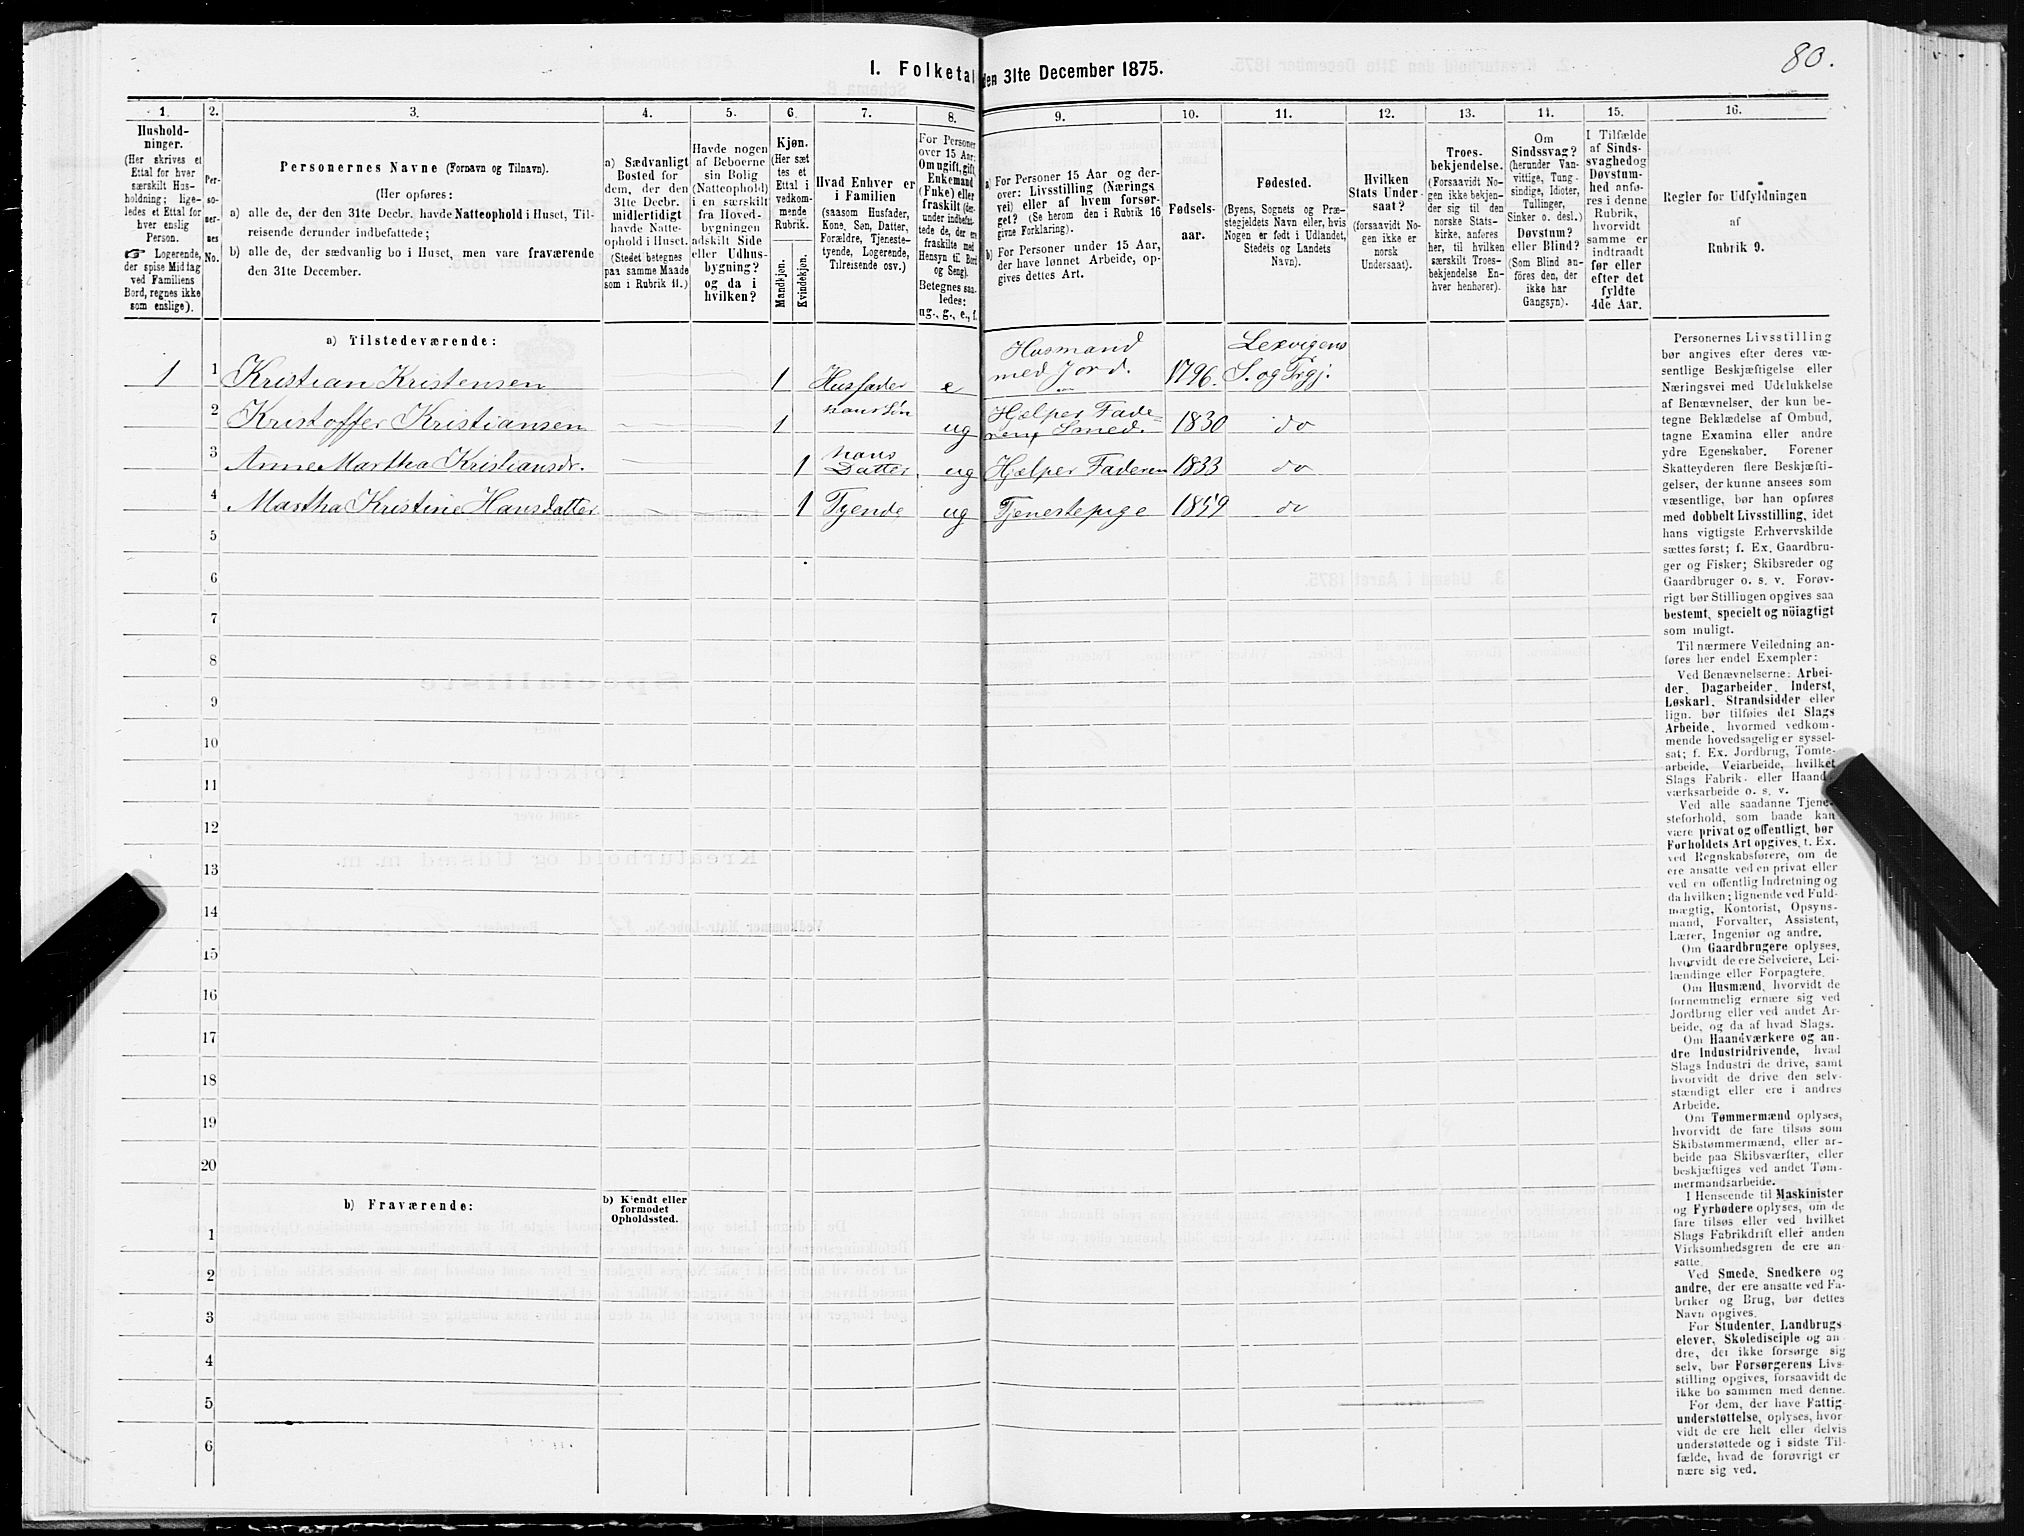 80.
I. Folketal den 31te December 1875.
1. 2. 3. 4. 5. 6. 7. 8. 9. 10. 11. 12. 13. 14. 15. 16.
Hushold-
ninger.
(Her skrives et
Ettal for hver
særskilt Hus-
holdning; lige-
ledes et Ettal for
hver enslig
Person.
☞ Logerende,
der spise Middag
ved Familiens
Bord, regnes ikke
som enslige).
Per-
so-
ner-
nes
No.
Personernes Navne (Fornavn og Tilnavn).
(Her opføres:
a) alle de, der den 31te Decbr. havde Natteophold i Huset, Til-
reisende derunder indbefattede;
b) alle de, der sædvanlig bo i Huset, men vare fraværende
den 31te December.
a) Sædvanligt
Bosted for
dem, der den
31te Decbr.
midlertidigt
havde Natte-
ophold i Huset.
(Stedet betegnes
paa samme Maade
som i Rubrik 11.)
Havde nogen
af Beboerne
sin Bolig
(Natteophold)
i en særskilt
fra Hoved-
bygningen
adskilt Side
eller Udhus-
bygning?
og da i
hvilken?
Kjøn.
(Her sæt
tes et
Ettal i
vedkom-
mende
Rubrik.
Mandkjøn.
Kvindekjøn.
Hvad Enhver er
i Familien
(saasom Husfader,
Kone, Søn, Datter,
Forældre, Tjeneste-
tyende, Logerende,
Tilreisende osv.)
For Personer
over 15 Aar:
Om ugift, gift,
Enkemand
(Enke) eller
fraskilt (der-
under indbefat-
tede de, der ere
fraskilte med
Hensyn til Bord
og Seng).
Betegnes saa-
ledes:
ug., g., e., f.
a) For Personer 15 Aar og der-
over: Livsstilling (Nærings
vei) eller af hvem forsør-
get? (Se herom den i Rubrik 16
givne Forklaring).
b) For Personer under 15 Aar,
der have lønnet Arbeide, op-
gives dettes Art.
Fødsels-
aar.
Fødested.
(Byens, Sognets og Præ-
stegjeldets Navn eller, hvis
Nogen er født i Udlandet,
Stedets og Landets
Navn).
Hvilken
Stats Under-
saat?
(forsaavidt No-
gen ikke er
norsk
Undersaat).
Troes-
bekjendelse.
(Forsaavidt No-
gen ikke bekjen-
der sig til den
norske Stats-
kirke, anføres
her, til hvilken
særskilt Troes-
bekjendelse En-
hver henhører).
Om
Sindssvag?
(herunder Van-
vittige, Tung-
sindige, Idioter,
Tullinger,
Sinker o. desl.)
Døvstum?
eller Blind?
(Som Blind an-
føres den, der
ikke har
Gangsyn).
I Tilfælde
af Sinds-
svaghed og
Døvstum-
hed anfø-
res i denne
Rubrik,
hvorvidt
samme er
indtraadt
før eller
efter det
fyldte
4de Aar.
Regler for Udfyldningen
af
Rubrik 9.
a) Tilstedeværende:
1 1 Kristian Kristensen 1 Husfader e Husmand med Jord. 1796. Lexvigens S. og Prgj.
2 Kristoffer Kristiansen 1 hans Søn ug Hjelper Faderen, Smed. 1830 do
3 Anne Martha Kristiansdr. 1 hans Datter ug Hjelper Faderen 1833 do
4 Martha Kristine Hansdatter 1 Tyende ug Tjenestepige 1859 do
5
6
7
8
9
10
11
12
13
14
15
16
17
18
19
20
b) Fraværende:
b) Kjendt eller
formodet
Opholdssted.
1
2
3
4
5
6
Personernes Livsstilling
bør angives efter deres væ-
sentlige Beskjæftigelse eller
Næringsvei med Udelukkelse
af Benævnelser, der kun be-
tegne Beklædelse af Ombud,
tagne Examina eller andre
ydre Egenskaber. Forener
Skatteyderen flere Beskjæfti-
gelser, der kunne ansees som
væsentlige, bør han opføres
med dobbelt Livsstilling, idet
hans vigtigste Erhvervskilde
sættes først; f. Ex. Gaardbru-
ger og Fisker; Skibsreder og
Gaardbruger o. s. v. Forøv-
rigt bør Stillingen opgives saa
bestemt, specielt og nöiagtigt
som muligt.
Til nærmere Veiledning an-
føres her endel Exempler:
Ved Benævnelserne: Arbei-
der, Dagarbeider, Inderst,
Løskarl, Strandsidder eller
lign. bør tilføies det Slags
Arbeide, hvormed vedkom-
mende hovedsagelig er syssel-
sat; f. Ex. Jordbrug, Tomte-
arbeide, Veiarbeide, hvilket
Slags Fabrik- eller Haand-
værksarbeide o. s. v.
Ved alle saadanne Tjene-
steforhold, som baade kan
være privat og offentligt, bør
Forholdets Art opgives, f. Ex.
ved Regnskabsførere, om de
ere ansatte ved en privat eller
ved en offentlig Indretning og
da hvilken; lignende ved Fuld-
mægtig, Kontorist, Opsyns-
mand, Forvalter, Assistent,
Lærer, Ingeniør og andre.
Om Gaardbrugere oplyses,
hvorvidt de ere Selveiere, Lei-
lændinge eller Forpagtere.
Om Husmænd, hvorvidt de
fornemmelig ernære sig ved
Jordbrug eller ved andet Ar-
beide, og da af hvad Slags.
Om Haandværkere og an-
dre Industridrivende, hvad
Slags Industri de drive, samt
hvorvidt de drive den selv-
stændigt eller ere i andres
Arbeide.
Om Tømmermænd oplyses,
hvorvidt de fare tilsøs som
Skibstømmermænd, eller ar-
beide paa Skibsværfter, eller
beskjæftiges ved andet Tøm-
mermandsarbeide.
I Henseende til Maskinister
og Fyrbødere oplyses, om de
fare tilsøs eller ved hvilket
Slags Fabrikdrift eller anden
Virksomhedsgren de ere an-
satte.
Ved Smede, Snedkere og
andre, der ere ansatte ved Fa-
briker og Brug, bør dettes
Navn opgives.
For Studenter, Landbrugs-
elever, Skoledisciple og an-
dre, der ikke forsørge sig
selv, bør Forsørgerens Livs-
stilling opgives, forsaavidt de
ikke bo sammen med denne.
For dem, der have Fattig-
understøttelse, oplyses, hvor-
vidt de ere helt eller delvis
understøttede og i sidste Til-
fælde, hvad de forøvrigt er-
nære sig ved.